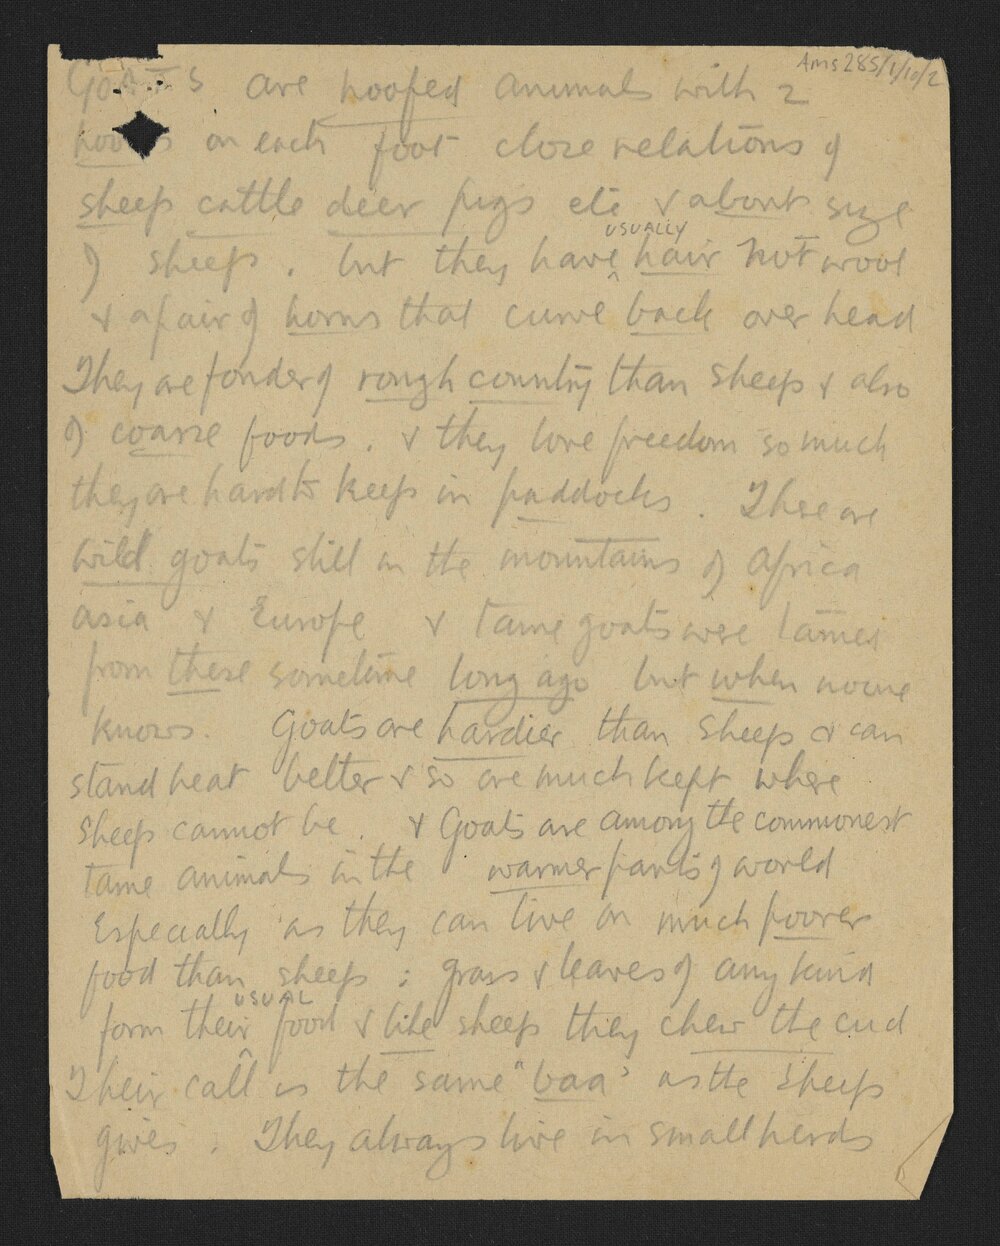 Ams 285/1/10/2
Goats are hoofed animals with 2
hoofs on each foot close relations of
sheep cattle deer pigs etc & about size
USUALLY
of sheep. but they have ^ hair not wool
& a pair of horns that curve back over head
They are fonder of rough country than sheep & also
of coarse foods. & they love freedom so much
they are hard to keep in paddocks. There are
wild goats still in the mountains of Africa
asia & Europe & tame goats were tamed
from these sometime long ago but when no one
knows. Goats are hardier than sheep & can
stand heat better & so are much kept where
sheep cannot be. & Goats are among the commonest
tame animals in the warmer parts of world
Especially as they can live on much poorer
food than sheep: grass & leaves of any kind
USUAL
form their ^ food & like sheep they chew the cud
Their call is the same "baa" as the sheep
gives. They always live in small herds